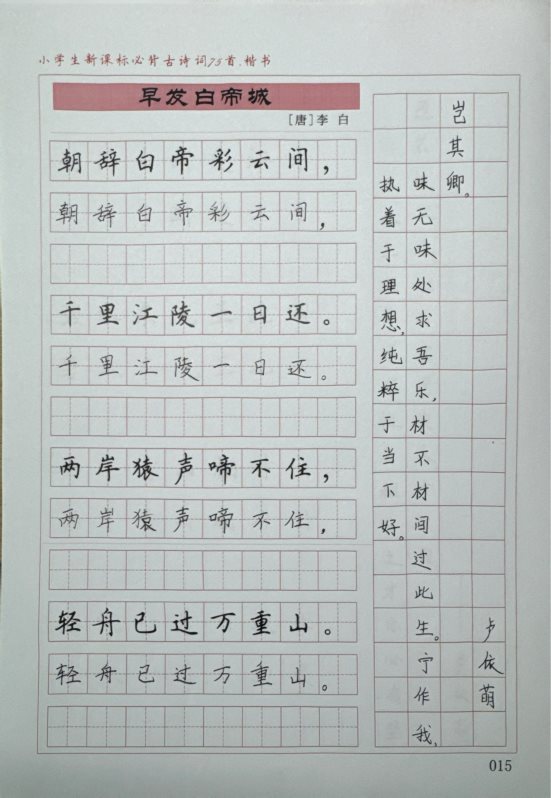 小学生新课标必背古诗词75首.楷书
早发白帝城
[唐]李 白
朝辞白帝彩云间，
朝辞白帝彩云间，
千里江陵一日还。
千里江陵一日还。
两岸猿声啼不住，
两岸猿声啼不住，
轻舟已过万重山。
轻舟已过万重山。
执着于理想，纯粹于当下好。
味无味处求吾乐，材不材间过此生。宁作我，
岂其卿。
卢依萌
015